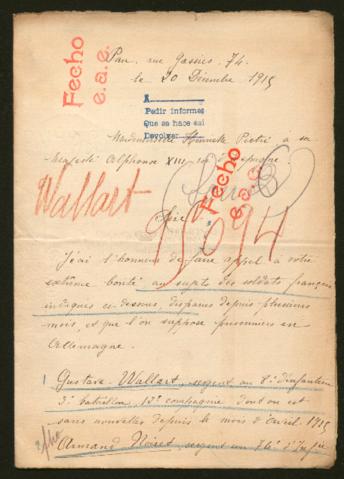 Fecho
e.a.e.
Pau, rue Gassies, 74.
le 20 Décembre 1915
A
Pedir informes
Que se hace así
Devolver
Mademoiselle Henriette Pietri à sa
Majesté Alphonse XIII roi d'Espagne.
Fecho
e.a.e.
Wallart
Sire
5094
J'ai l'honneur de faire appel à votre
extrême bonté au sujet des soldats français
indiqués ci-dessous, disparus depuis plusieurs
mois, et que l'on suppose prisonniers en
Allemagne.
1 Gustave Wallart, sergent au 8e d'infanterie
3e bataillon, 13e compagnie dont on est
sans nouvelles depuis le mois d'Avril 1915
Armand Noiret, sergent au